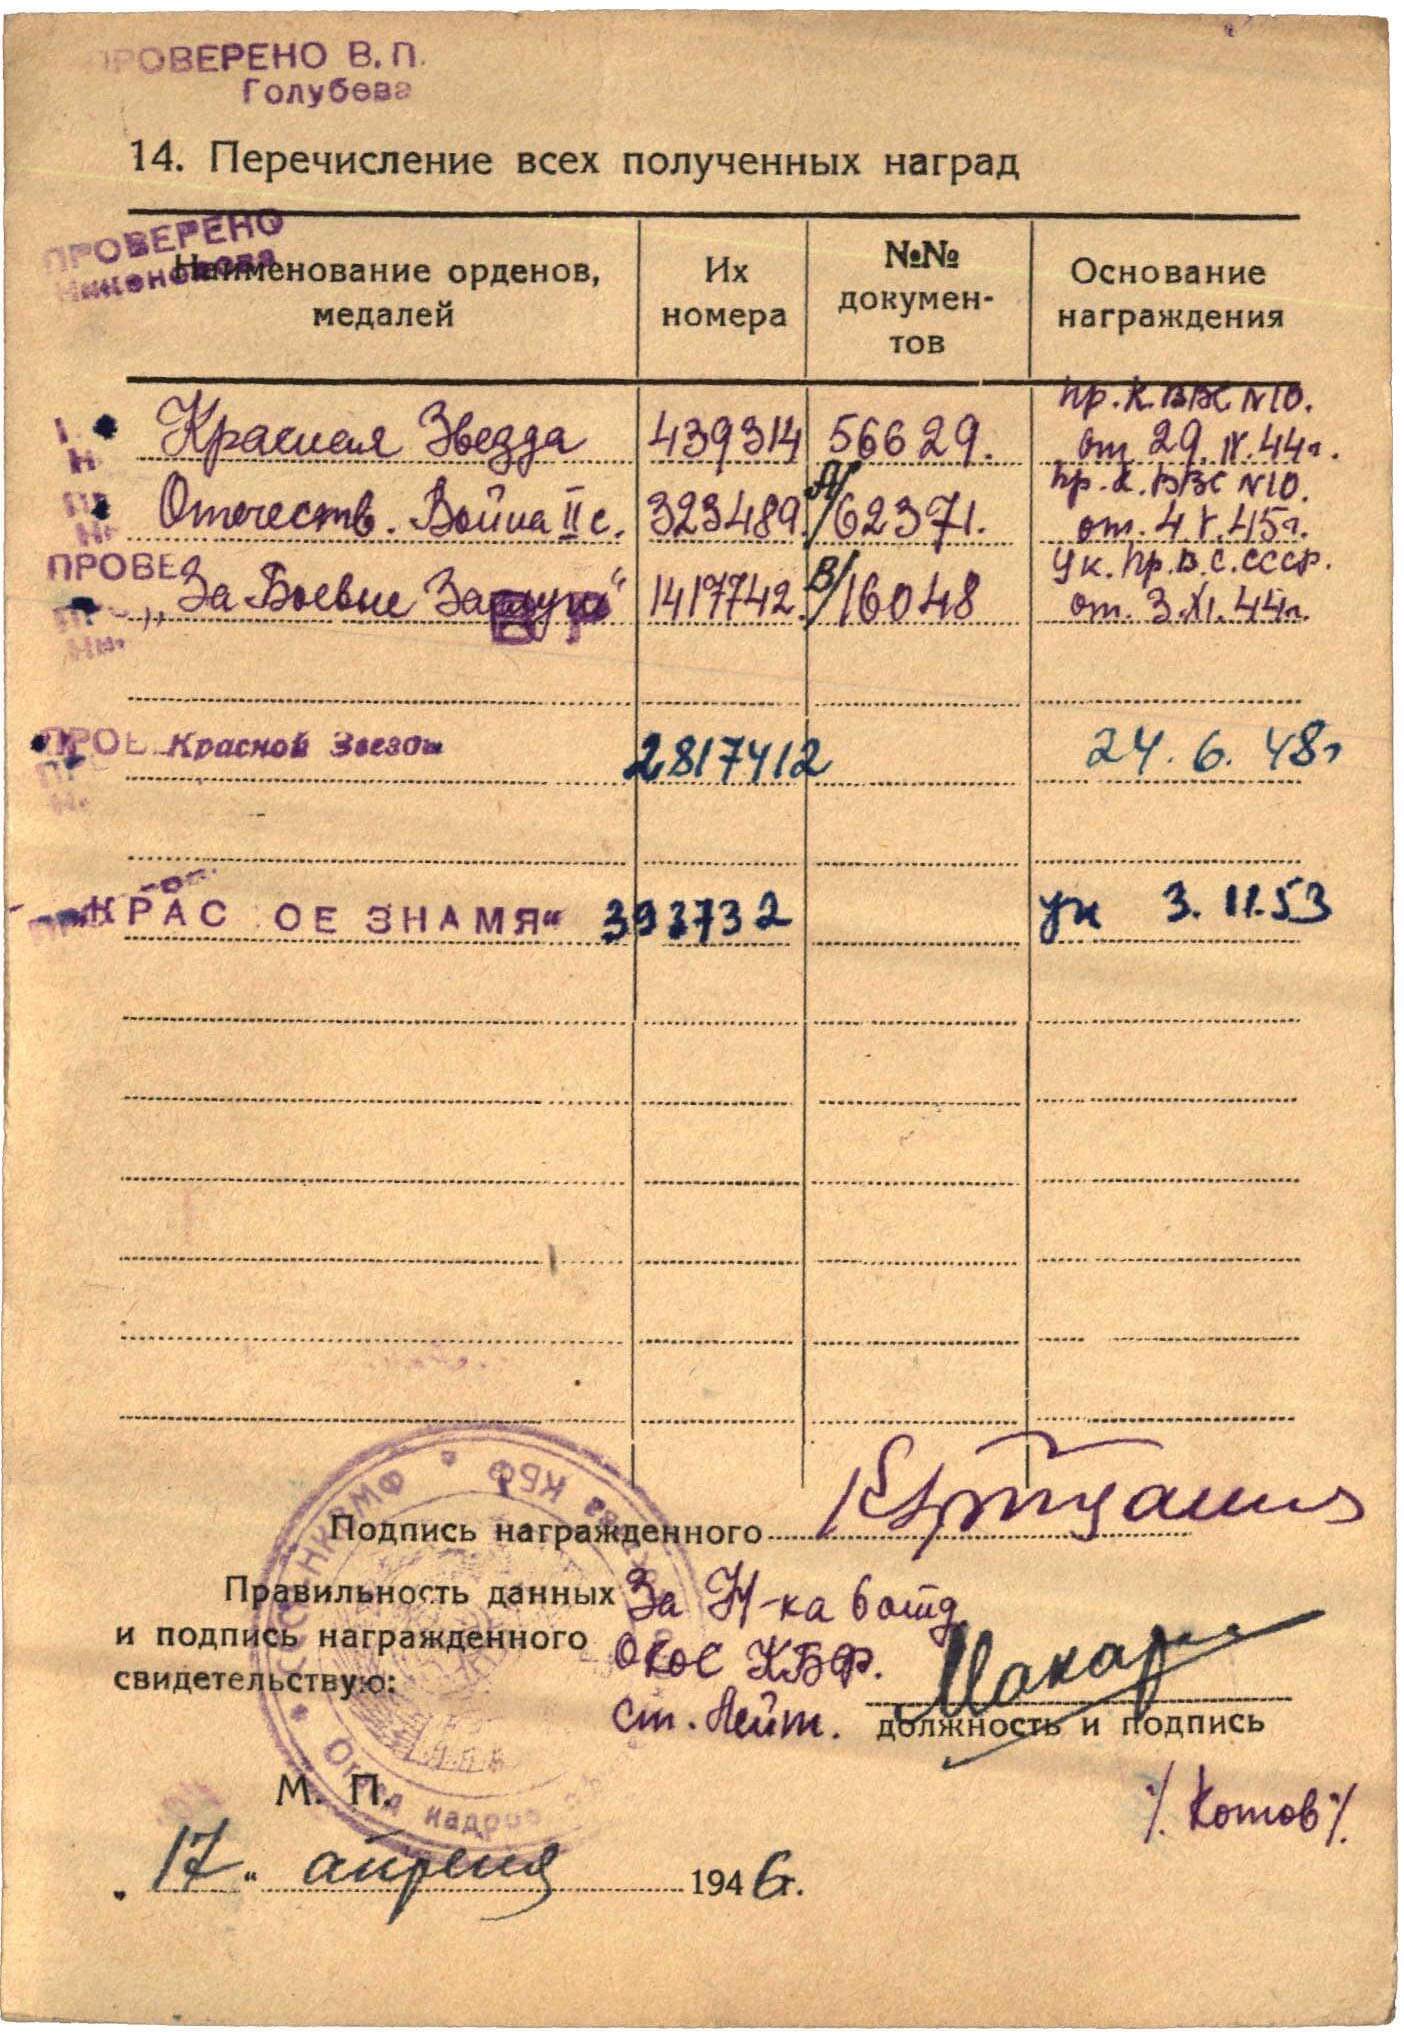 ПРОВЕРЕНО В. П.
Голубева
14. Перечисление всех полученных наград
ПРОВЕРЕНО
Наименование орденов, медалей
Их номера
№№ докумен-тов
Основание награждения
Красная Звезда 439314 56629. Пр. К. ВВС №10. от 29.IV.44г.
Отечеств. Война II с. 323489 А/62371. Пр. К. ВВС №10. от. 4.V.45г.
ПРОВЕ За Боевые Заслуги" 1417742 В/16048 Ук. Пр. В. С. СССР. от. 3.XI.44г.
ВР
ПРОВ Красной Звезды 2817412 24.6.48г
„КРАС ОЕ ЗНАМЯ" 393732 ук 3.11.53
Подпись награжденного
Правильность данных
и подпись награжденного
свидетельствую:
За Н-ка 6 отд
ОКОС КБФ.
ст. лейт.
Макар
должность и подпись
/. Котов /.
М. П.
НКВМФ
КБФ
Отдел кадров
„17" апреля 1946г.